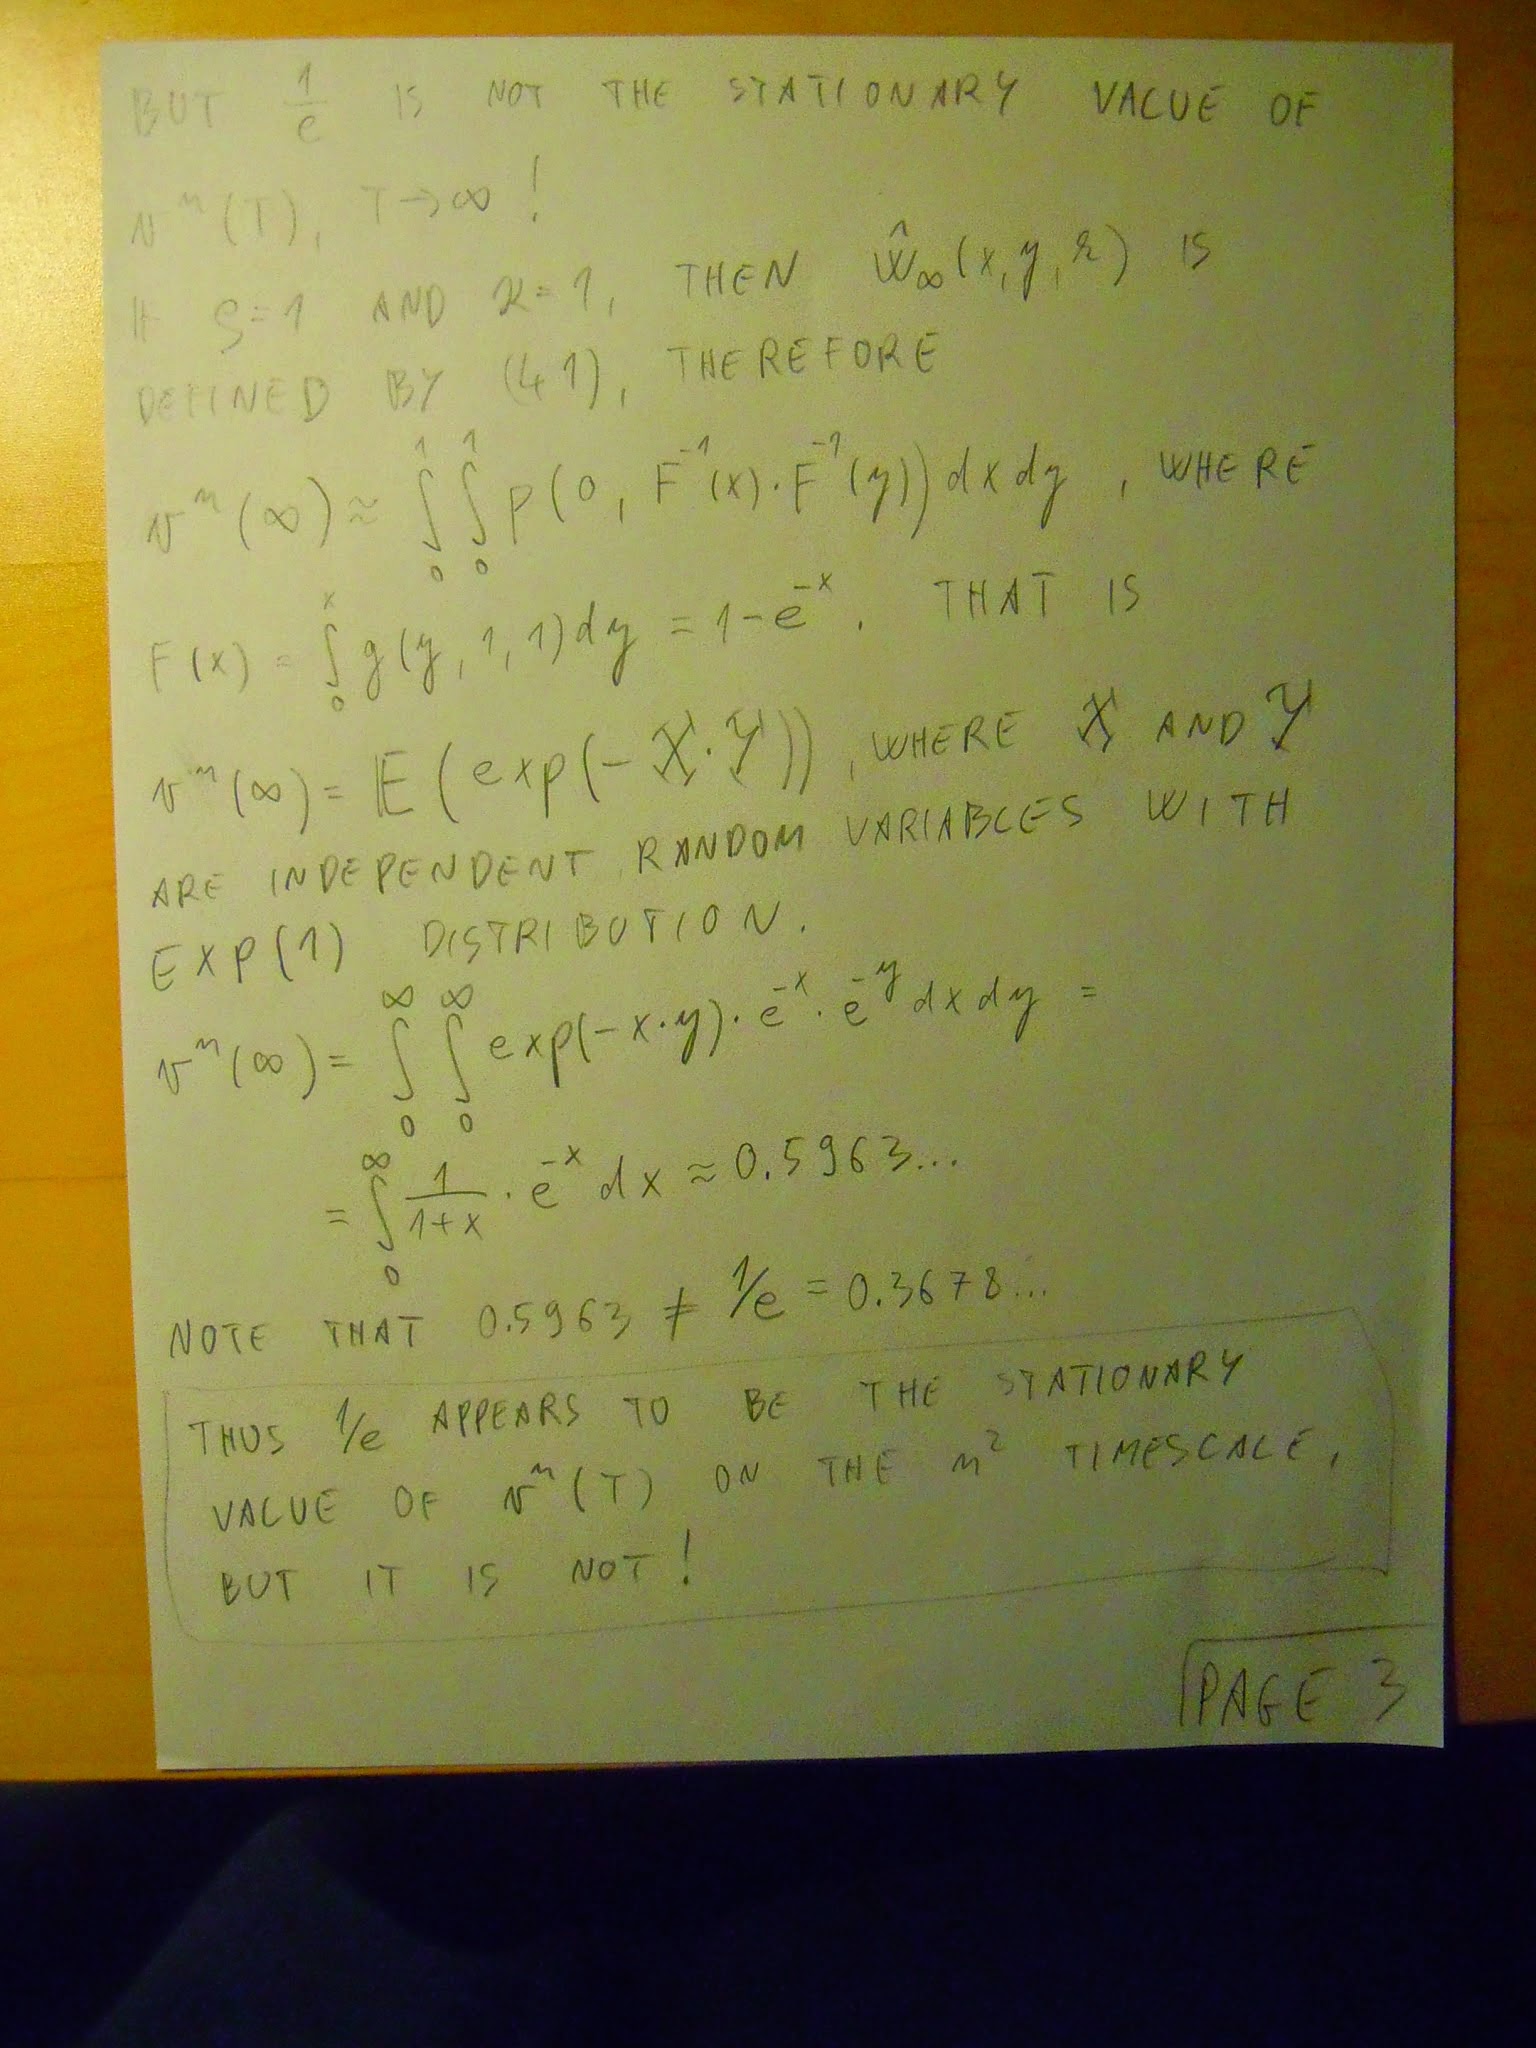 BUT 1/e IS NOT THE STATIONARY VALUE OF
v^n(T), T→∞!
IF ρ=1 AND ϰ=1, THEN Ŵ_∞(x,y,k) IS
DEFINED BY (41), THEREFORE
v^n(∞) ≈ ∫_0^1 ∫_0^1 p(0, F^{-1}(x)·F^{-1}(y)) dx dy, WHERE
F(x) = ∫_0^x g(y,1,1) dy = 1-e^{-x}. THAT IS
v^n(∞) = 𝔼(exp(-X·Y)), WHERE X AND Y
ARE INDEPENDENT RANDOM VARIABLES WITH
EXP(1) DISTRIBUTION.
v^n(∞) = ∫_0^∞ ∫_0^∞ exp(-x·y)·e^{-x}·e^{-y} dx dy =
= ∫_0^∞ 1/(1+x) · e^{-x} dx ≈ 0.5963...
NOTE THAT 0.5963 ≠ 1/e = 0.3678...
THUS 1/e APPEARS TO BE THE STATIONARY
VALUE OF v^n(T) ON THE n^2 TIMESCALE,
BUT IT IS NOT!
PAGE 3